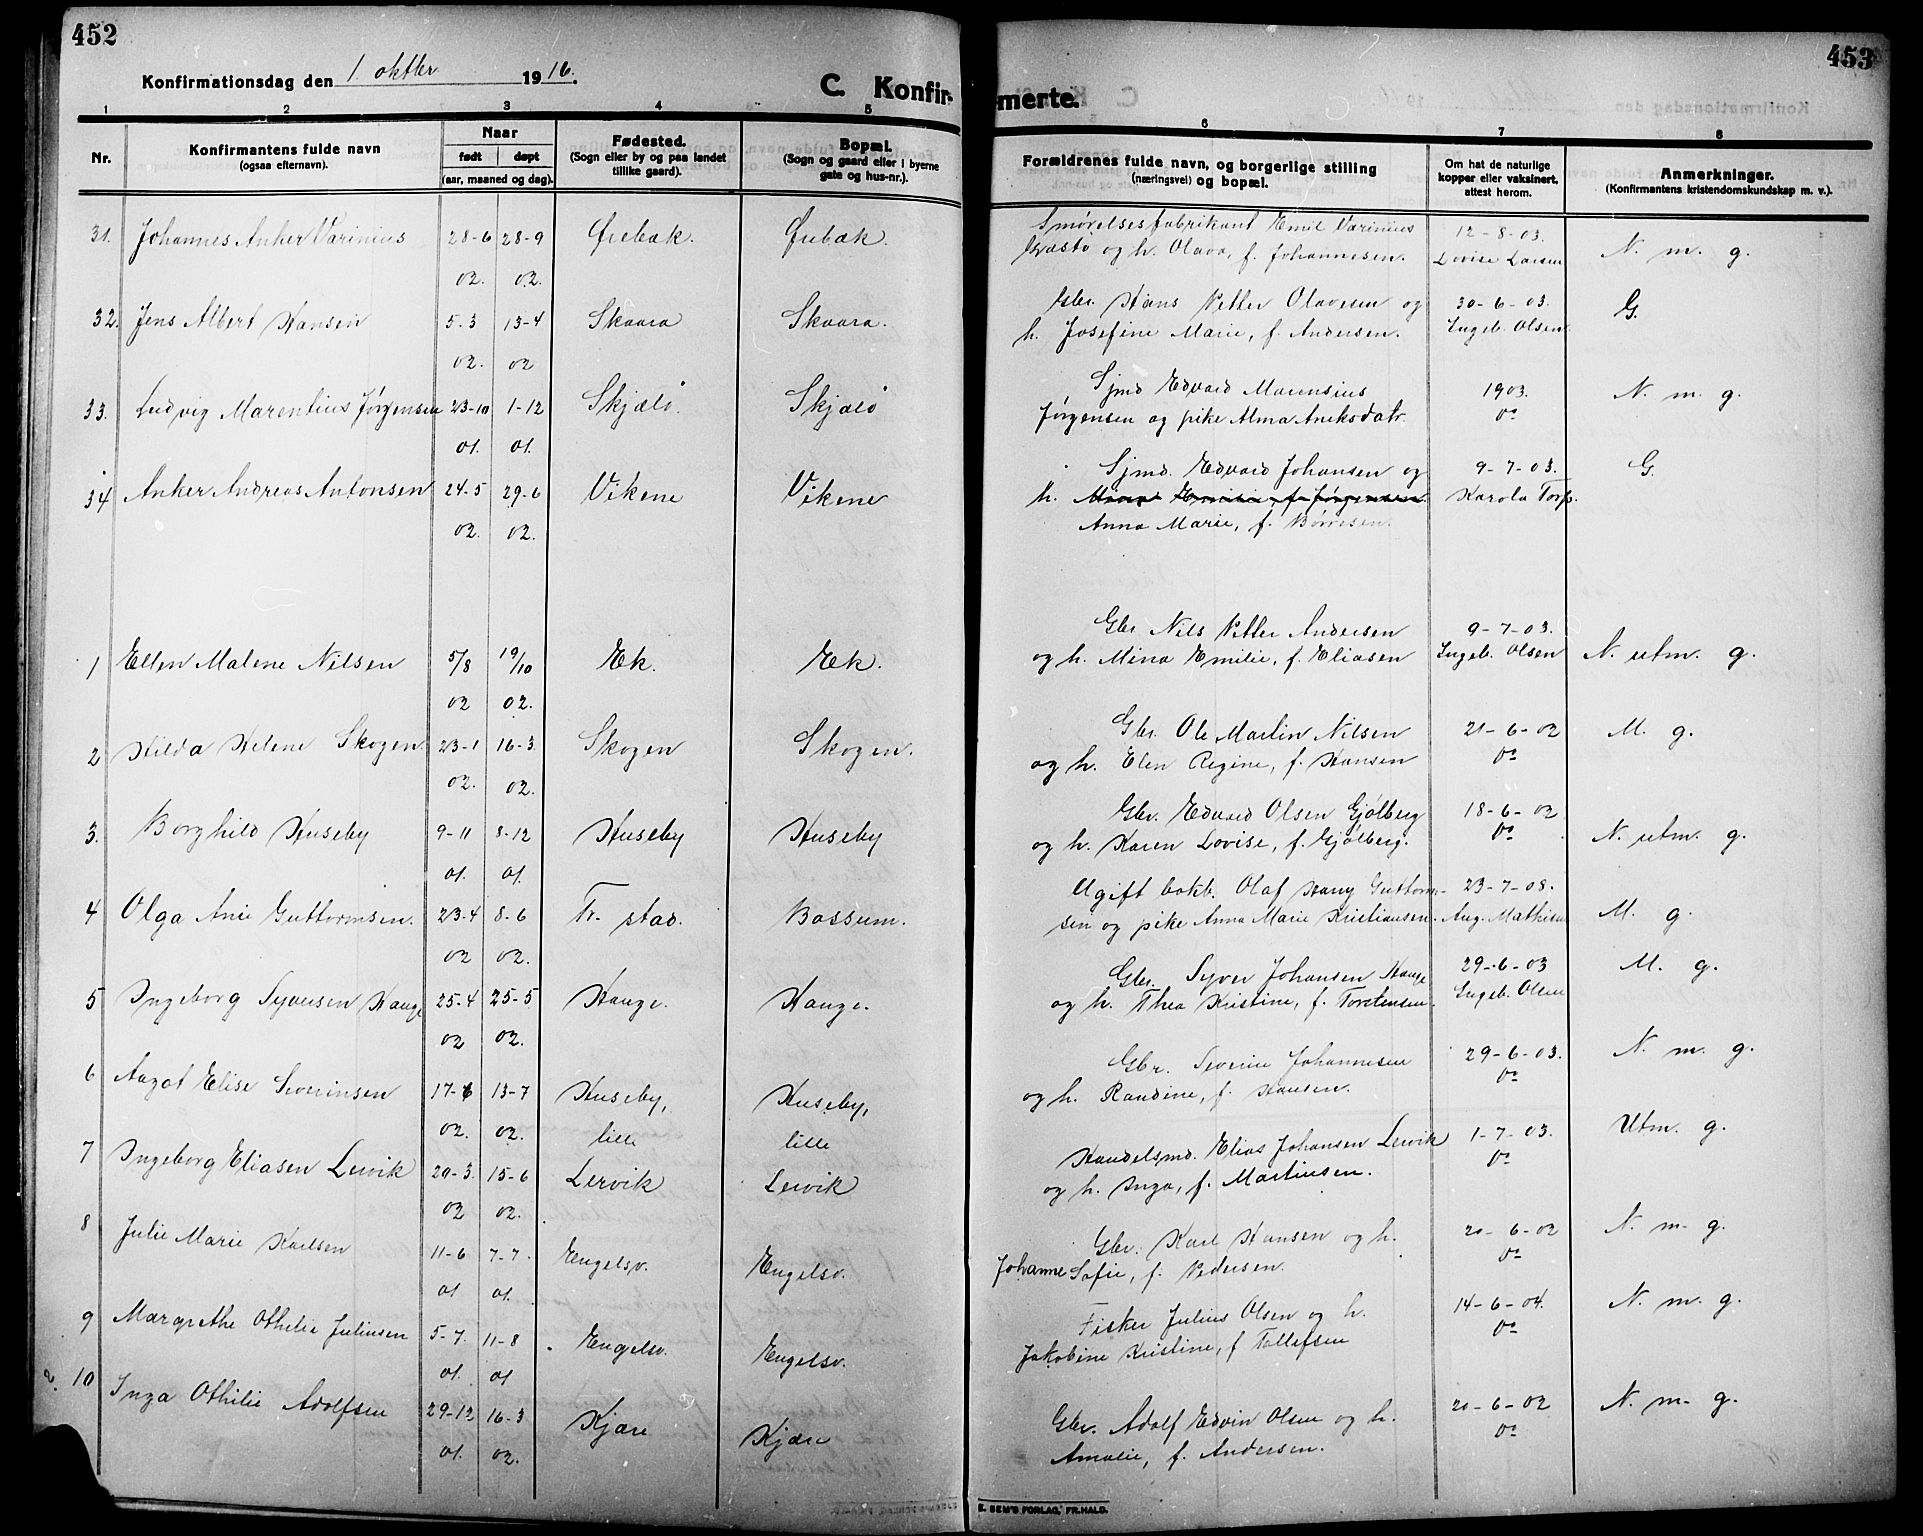 452
Konfirmationsdag den 1 oktber 1916.
C. Konfir-
1 2 3 4 5
Nr. Konfirmantens fulde navn (ogsaa efternavn). Naar født døpt (aar, maaned og dag). Fødested. (Sogn eller by og paa landet tillike gaard). Bopæl. (Sogn og gaard eller i byerne gate og hus-nr.).
31. Johannes Anker Varinius 28-6 28-9 Øiebæk. Øiebæk.
02. 02.
32. Jens Albert Hansen 5.3 13-4 Skaara Skaara.
02. 02
33. Ludvig Marentius Jørgensen 23-10 1-12 Skjælø. Skjælø
01. 01.
34 Anker Andreas Antonsen 24-5 29-6 Vikene Vikene
02. 02.
1 Ellen Malene Nilsen 5/8 19/10 Ek. Ek.
02 02.
2 Hilda Helene Skogen 23-1 16-3 Skogen Skogen.
02. 02.
3. Borghild Huseby 9-11 8-12 Huseby Huseby
01. 01.
4 Olga Anie Guttormsen. 23-4 8-6 Fr. stad. Bossum.
02 02.
5 Ingeborg Syversen Hauge 25-4 25-5 Hauge. Hauge.
02 02.
6 Aagot Elise Severinsen 17-6 13-7 Huseby, Huseby,
02. 02. lille lille
7 Ingeborg Eliasen Lervik 20-3 15-6 Lervik Lervik
02 02.
8 Julie Marie Karlsen 11-6 7-7 Engelsv. Engelsv.
01 01.
9 Margrethe Othilie Juliussen 5-7. 11-8 Engelsv. Engelsv.
01. 01
10 Inga Othilie Adolfsen 29-12 16-3 Kjære Kjære
01. 02.
453
merte.
6 7 8
Forældrenes fulde navn, og borgerlige stilling (næringsvei) og bopæl. Om hat de naturlige kopper eller vaksinert, attest herom. Anmerkninger. (Konfirmantens kristendomskundskap m. v.).
Smørelsesfabrikant Emil Varinius 12-8-03. N. m. g.
og h. Olava, f. Johannesen. Lovise Larsen
Gbr. Hans Petter Olavesen og 30-6-03. G.
h. Josefine Marie, f. Andersen. Ingeb. Olsen
Sjmd Edvard Marensius 1903. N. m. g.
Jørgensen og pike Alma Aneksdatr. do
Sjmd. Edvard Johansen og 9-7-03. G
h. Mina Emilie, f. Jørgensen Karola Torp.
Anna Marie, f. Børresen.
Gbr Nils Petter Andersen 9-7-03.
og h. Mina Emilie, f. Eliasen Ingeb. Olsen N. utm. g.
Gbr. Ole Martin Nilsen 21-6-02 M. g.
og h. Elen Regine, f. Hansen do
Gbr. Edvard Olsen Gjølberg 18-6-02
og h. Karen Lovise, f. Gjølberg. do N. utm. g.
Ugift bokb. Olaf Haug Guttorm- 23-7-08.
sen og pike Anna Marie Kristiansen. Aug. Mathisen M. g.
Gbr. Syver Johansen Hauge 29-6-03 M. g.
og h. Thea Kristine, f. Torstensen. Ingeb. Olsen
Gbr. Severin Johannesen 29-6-03. N. m. g.
og h. Randine, f. Hansen. do
Handelsmd. Elias Johansen Lervik 1-7-03. Utm. g.
og h. Inga, f. Martinsen. do
Gbr. Karl Hansen og h. 20-6-02 N. m. g.
Johanne Sofie, f. Pedersen. do
Fisker Julius Olsen og h. 14-6-04. N. m. g.
Jakobine Kristine, f Tollefsen do
Gbr. Adolf Edvin Olsen og h. 20-6-02 N. m. g.
Amalie, f. Andersen. do
E. SEM'S FORLAG, FR.HALD.